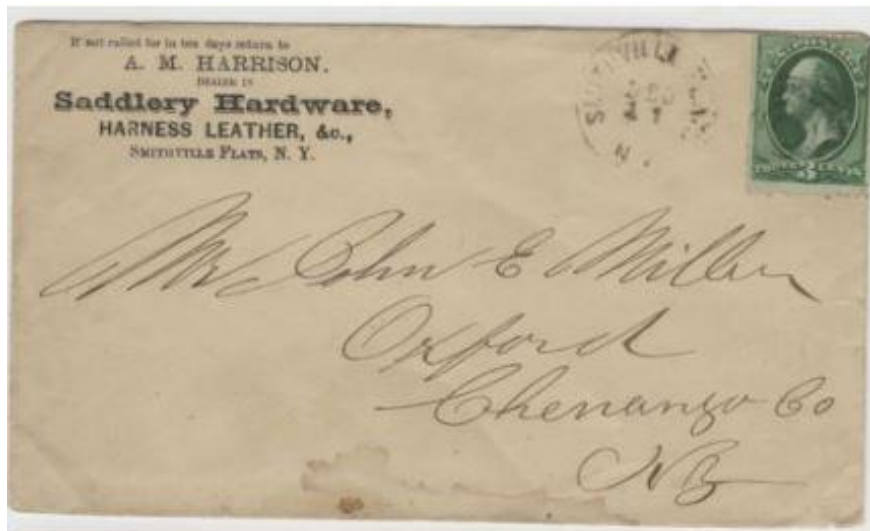 If not called for in ten days return to
A. M. HARRISON.
DEALER IN
Saddlery Hardware,
HARNESS LEATHER, &c.,
SMITHVILLE FLATS, N. Y.
SMITHVILLE
N
THREE 3 CENTS
Mr John E Miller
Oxford
Chenango Co
NY